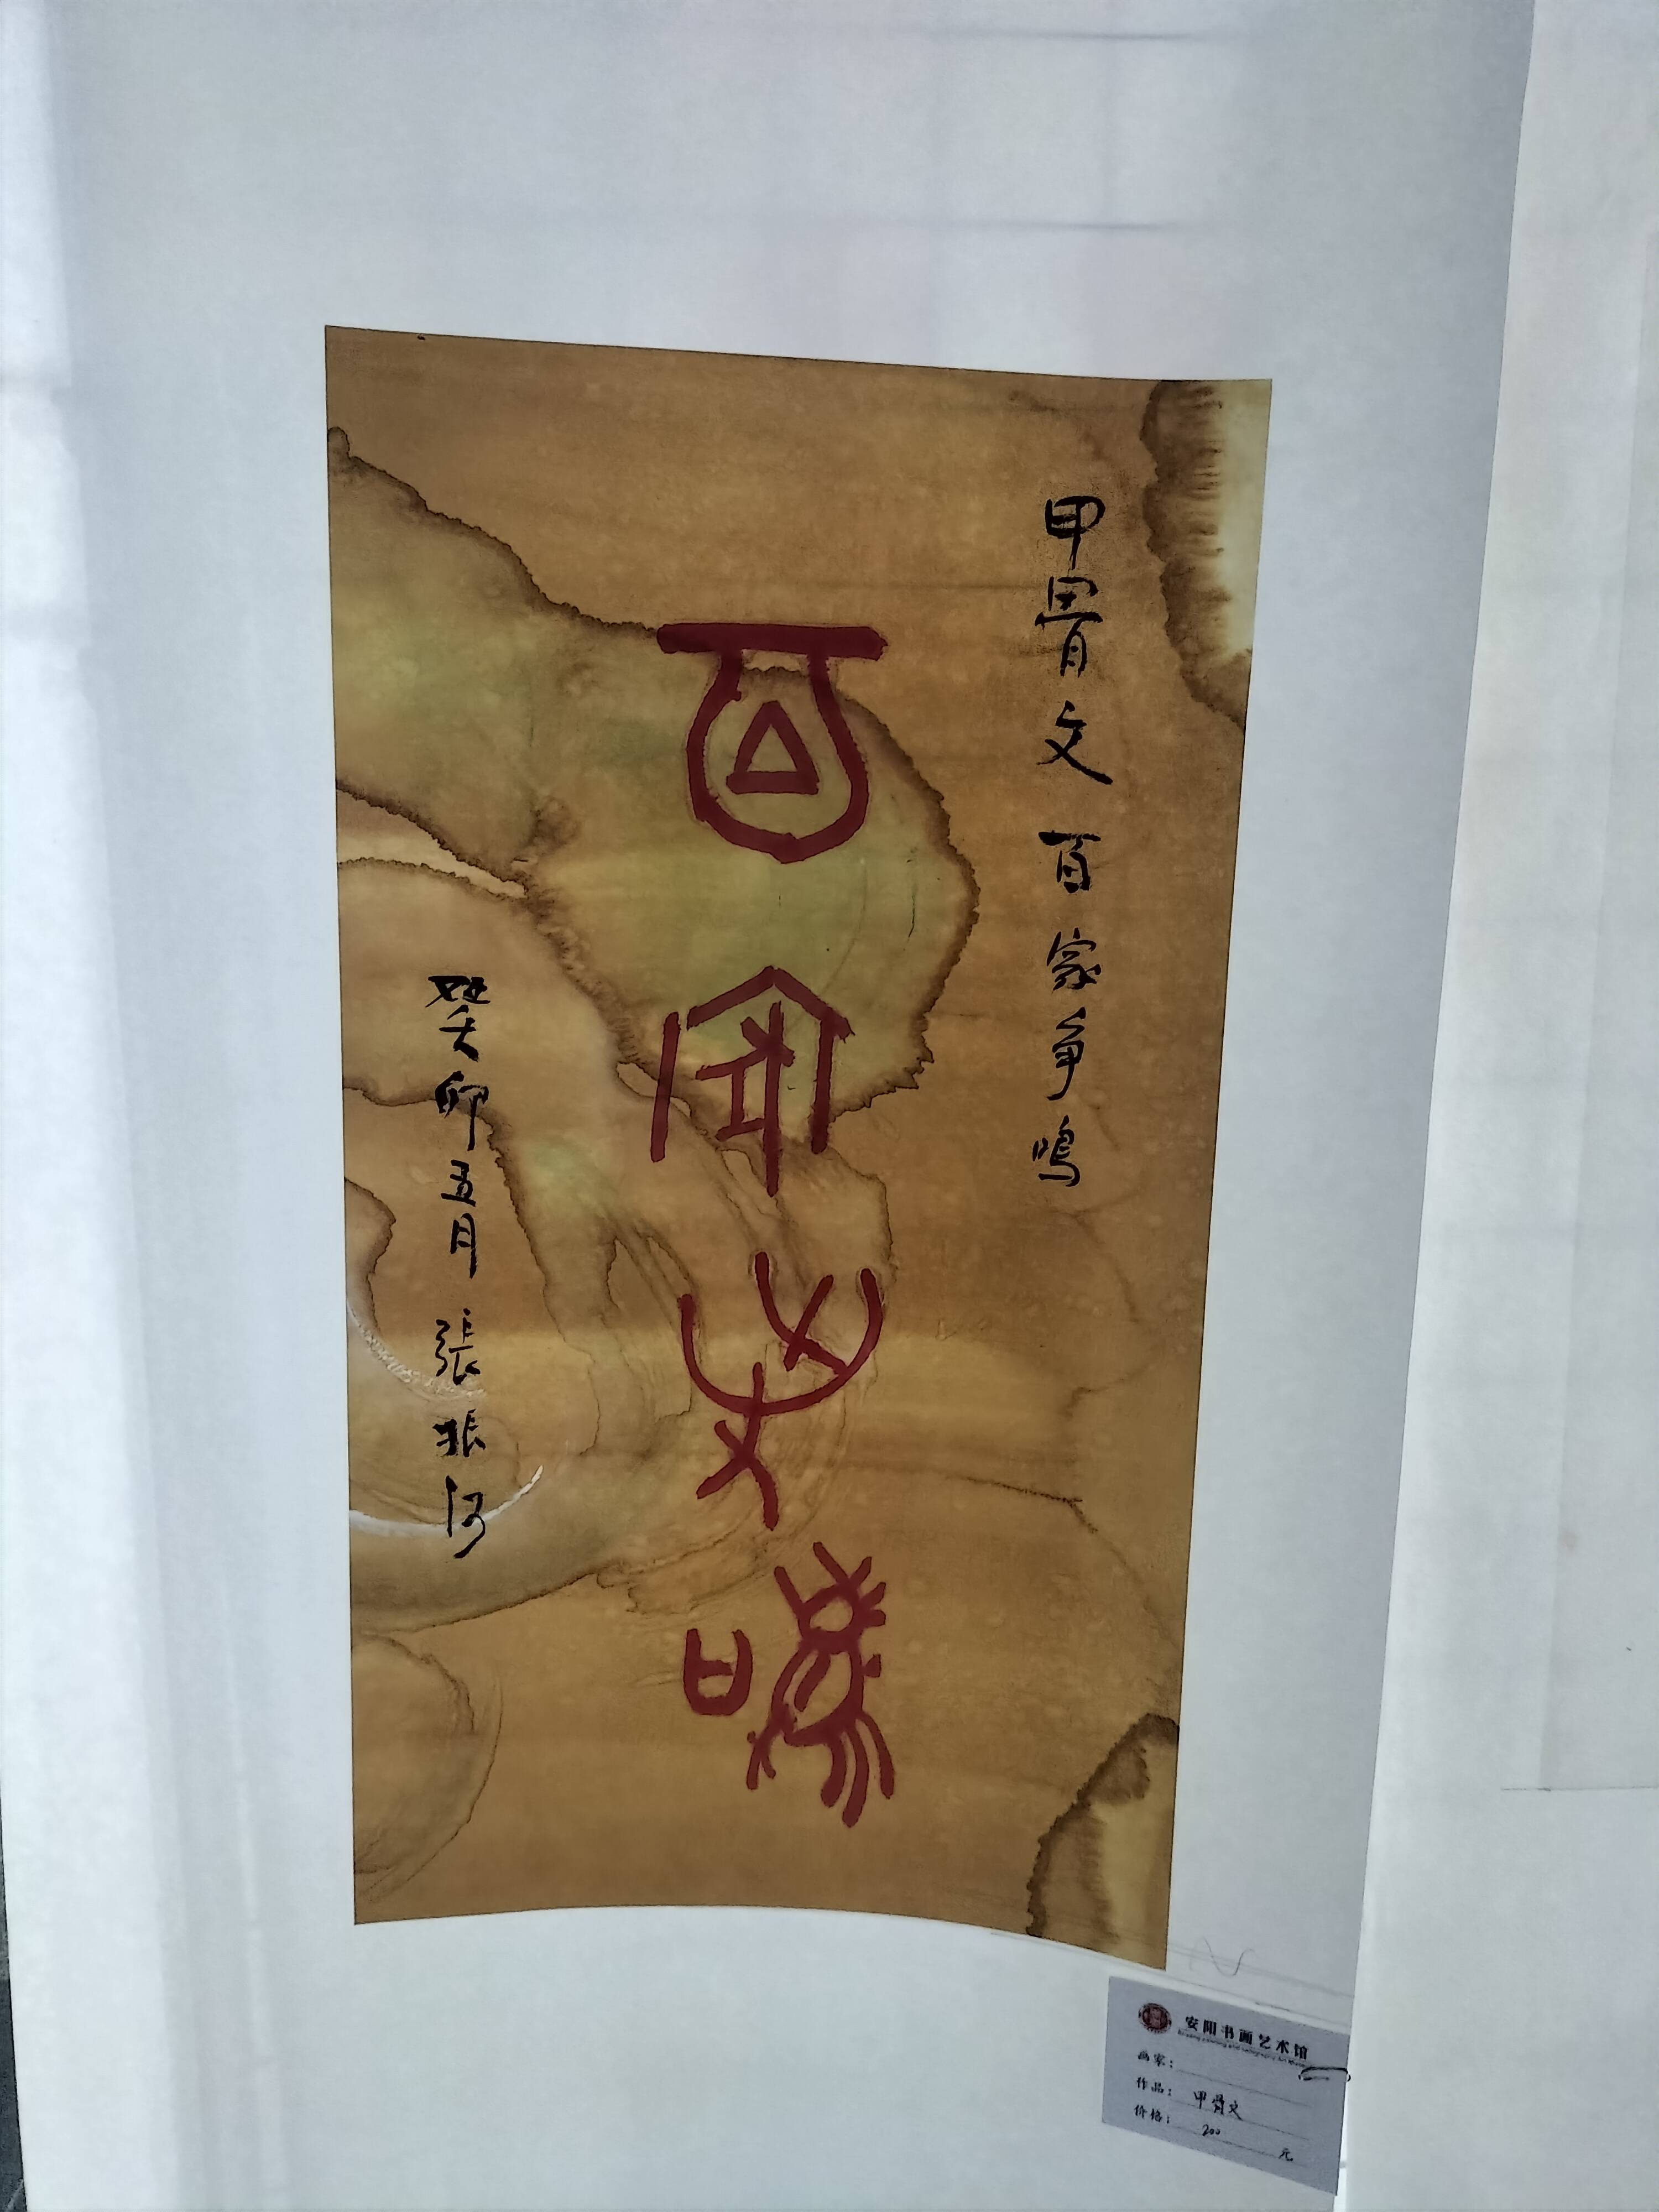 甲骨文 百家争鳴
百家争鳴
癸卯五月 張振河
安阳书画艺术馆
画家:
作品: 甲骨文
价格: 200 元